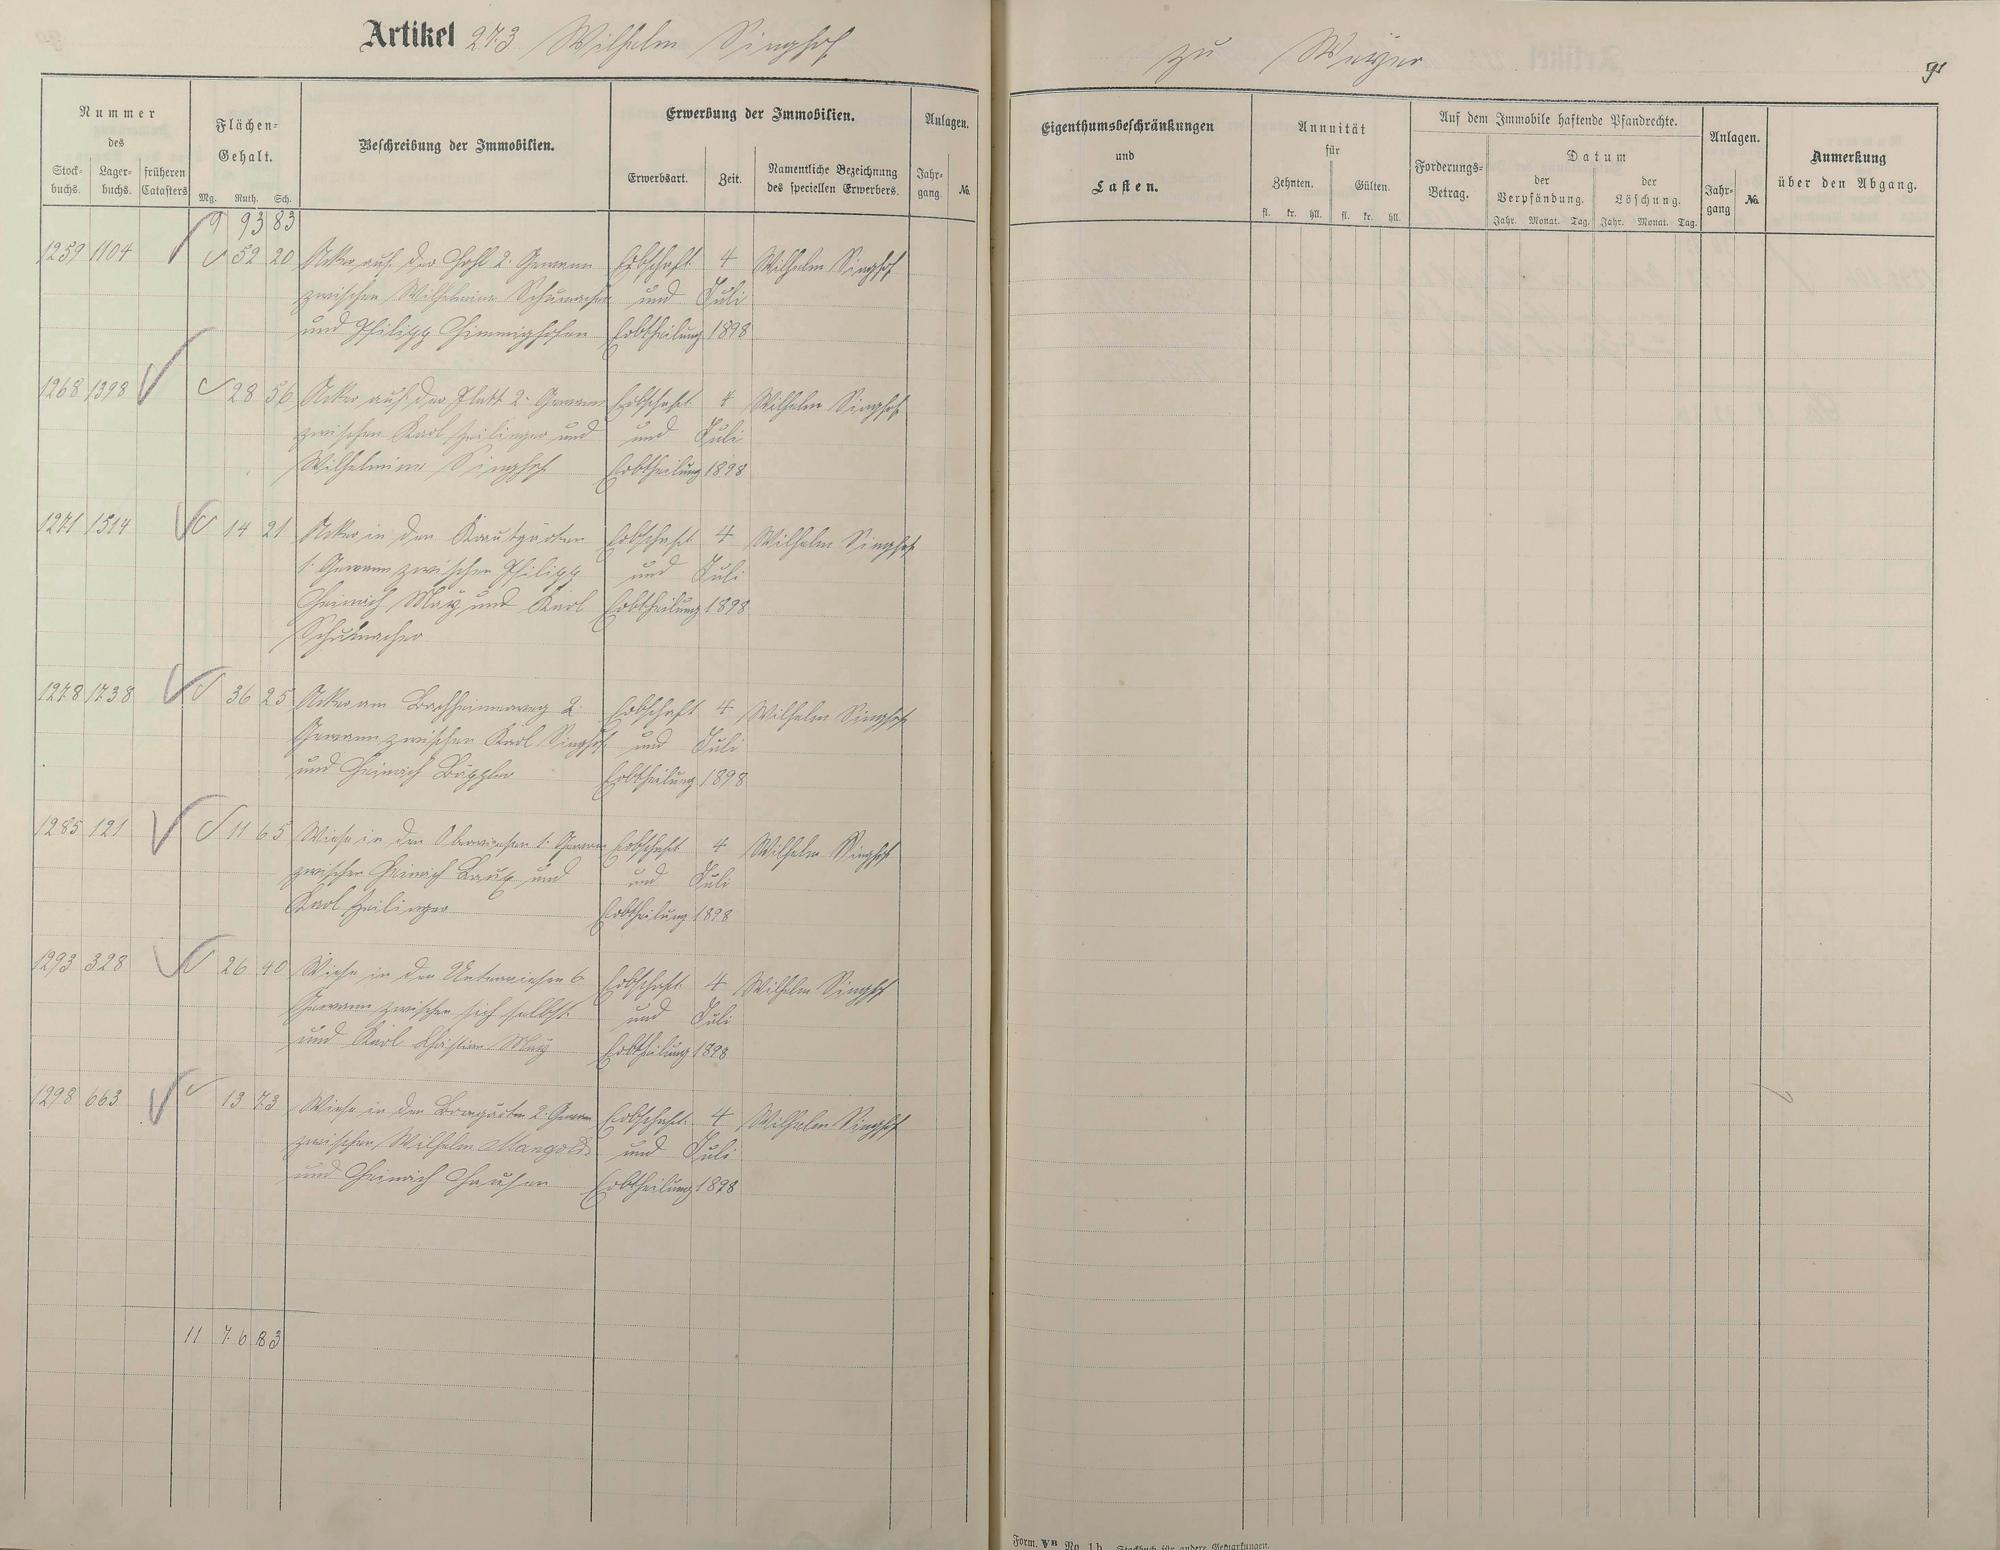 Artikel 273 Wilhelm Singhof
zu Weyer
91
Nummer
des
Stock-
buchs.
Lager-
buchs.
früheren
Catasters
Flächen-
Gehalt.
Mg. Ruth. Sch.
Beschreibung der Immobilien.
Erwerbung der Immobilien.
Erwerbsart.
Zeit.
Namentliche Bezeichnung
des speciellen Erwerbers.
Anlagen.
Jahr-
gang.
No.
9 93 83
1259 1104 52 20 Acker auf der Hohl 2. Gewann Erbschaft 4 Wilhelm Singhof
zwischen Wilhelmine Schumacher und Juli
und Philipp Himmighofen Erbtheilung 1898
1268 1398 28 56 Acker auf der Platt 2. Gewann Erbschaft 4 Wilhelm Singhof
zwischen Karl Heilinger und und Juli
Wilhelmine Singhof Erbtheilung 1898
1271 1514 14 21 Acker in den Krautgärten Erbschaft 4 Wilhelm Singhof
1. Gewann zwischen Philipp und Juli
Heinrich May und Karl Erbtheilung 1898
Schumacher
1278 1738 36 25 Acker am Bachheimerweg 2. Erbschaft 4 Wilhelm Singhof
Gewann zwischen Karl Singhof und Juli
und Heinrich Bäppler Erbtheilung 1898
1285 121 11 65 Wiese in den Oberwiesen 1. Gewann Erbschaft 4 Wilhelm Singhof
zwischen Heinrich Laux und und Juli
Karl Heilinger Erbtheilung 1898
1293 328 26 40 Wiese in den Unterwiesen 6. Erbschaft 4 Wilhelm Singhof
Gewann zwischen sich selbst und Juli
und Karl Christian May Erbtheilung 1898
1298 663 13 73 Wiese in den Bomgärten 2. Gewann Erbschaft 4 Wilhelm Singhof
zwischen Wilhelm Mangold und Juli
und Heinrich Hausen Erbtheilung 1898
11 76 83
Eigenthumsbeschränkungen
und
Lasten.
Annuität
für
Zehnten.
Gülten.
fl. kr. hll. fl. kr. hll.
Auf dem Immobile haftende Pfandrechte.
Forderungs-
Betrag.
Datum
der
Verpfändung.
der
Löschung.
Jahr. Monat. Tag. Jahr. Monat. Tag.
Anlagen.
Jahr-
gang
No.
Anmerkung
über den Abgang.
Form. VB No. 1b. Stockbuch für andere Gemarkungen.